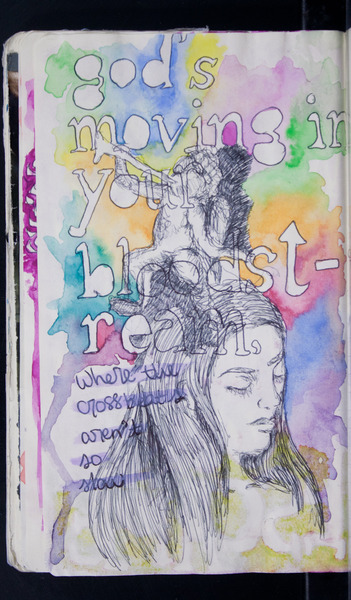 god's
moving in
your
bloodst-
ream,
where the
aren't
so
slow